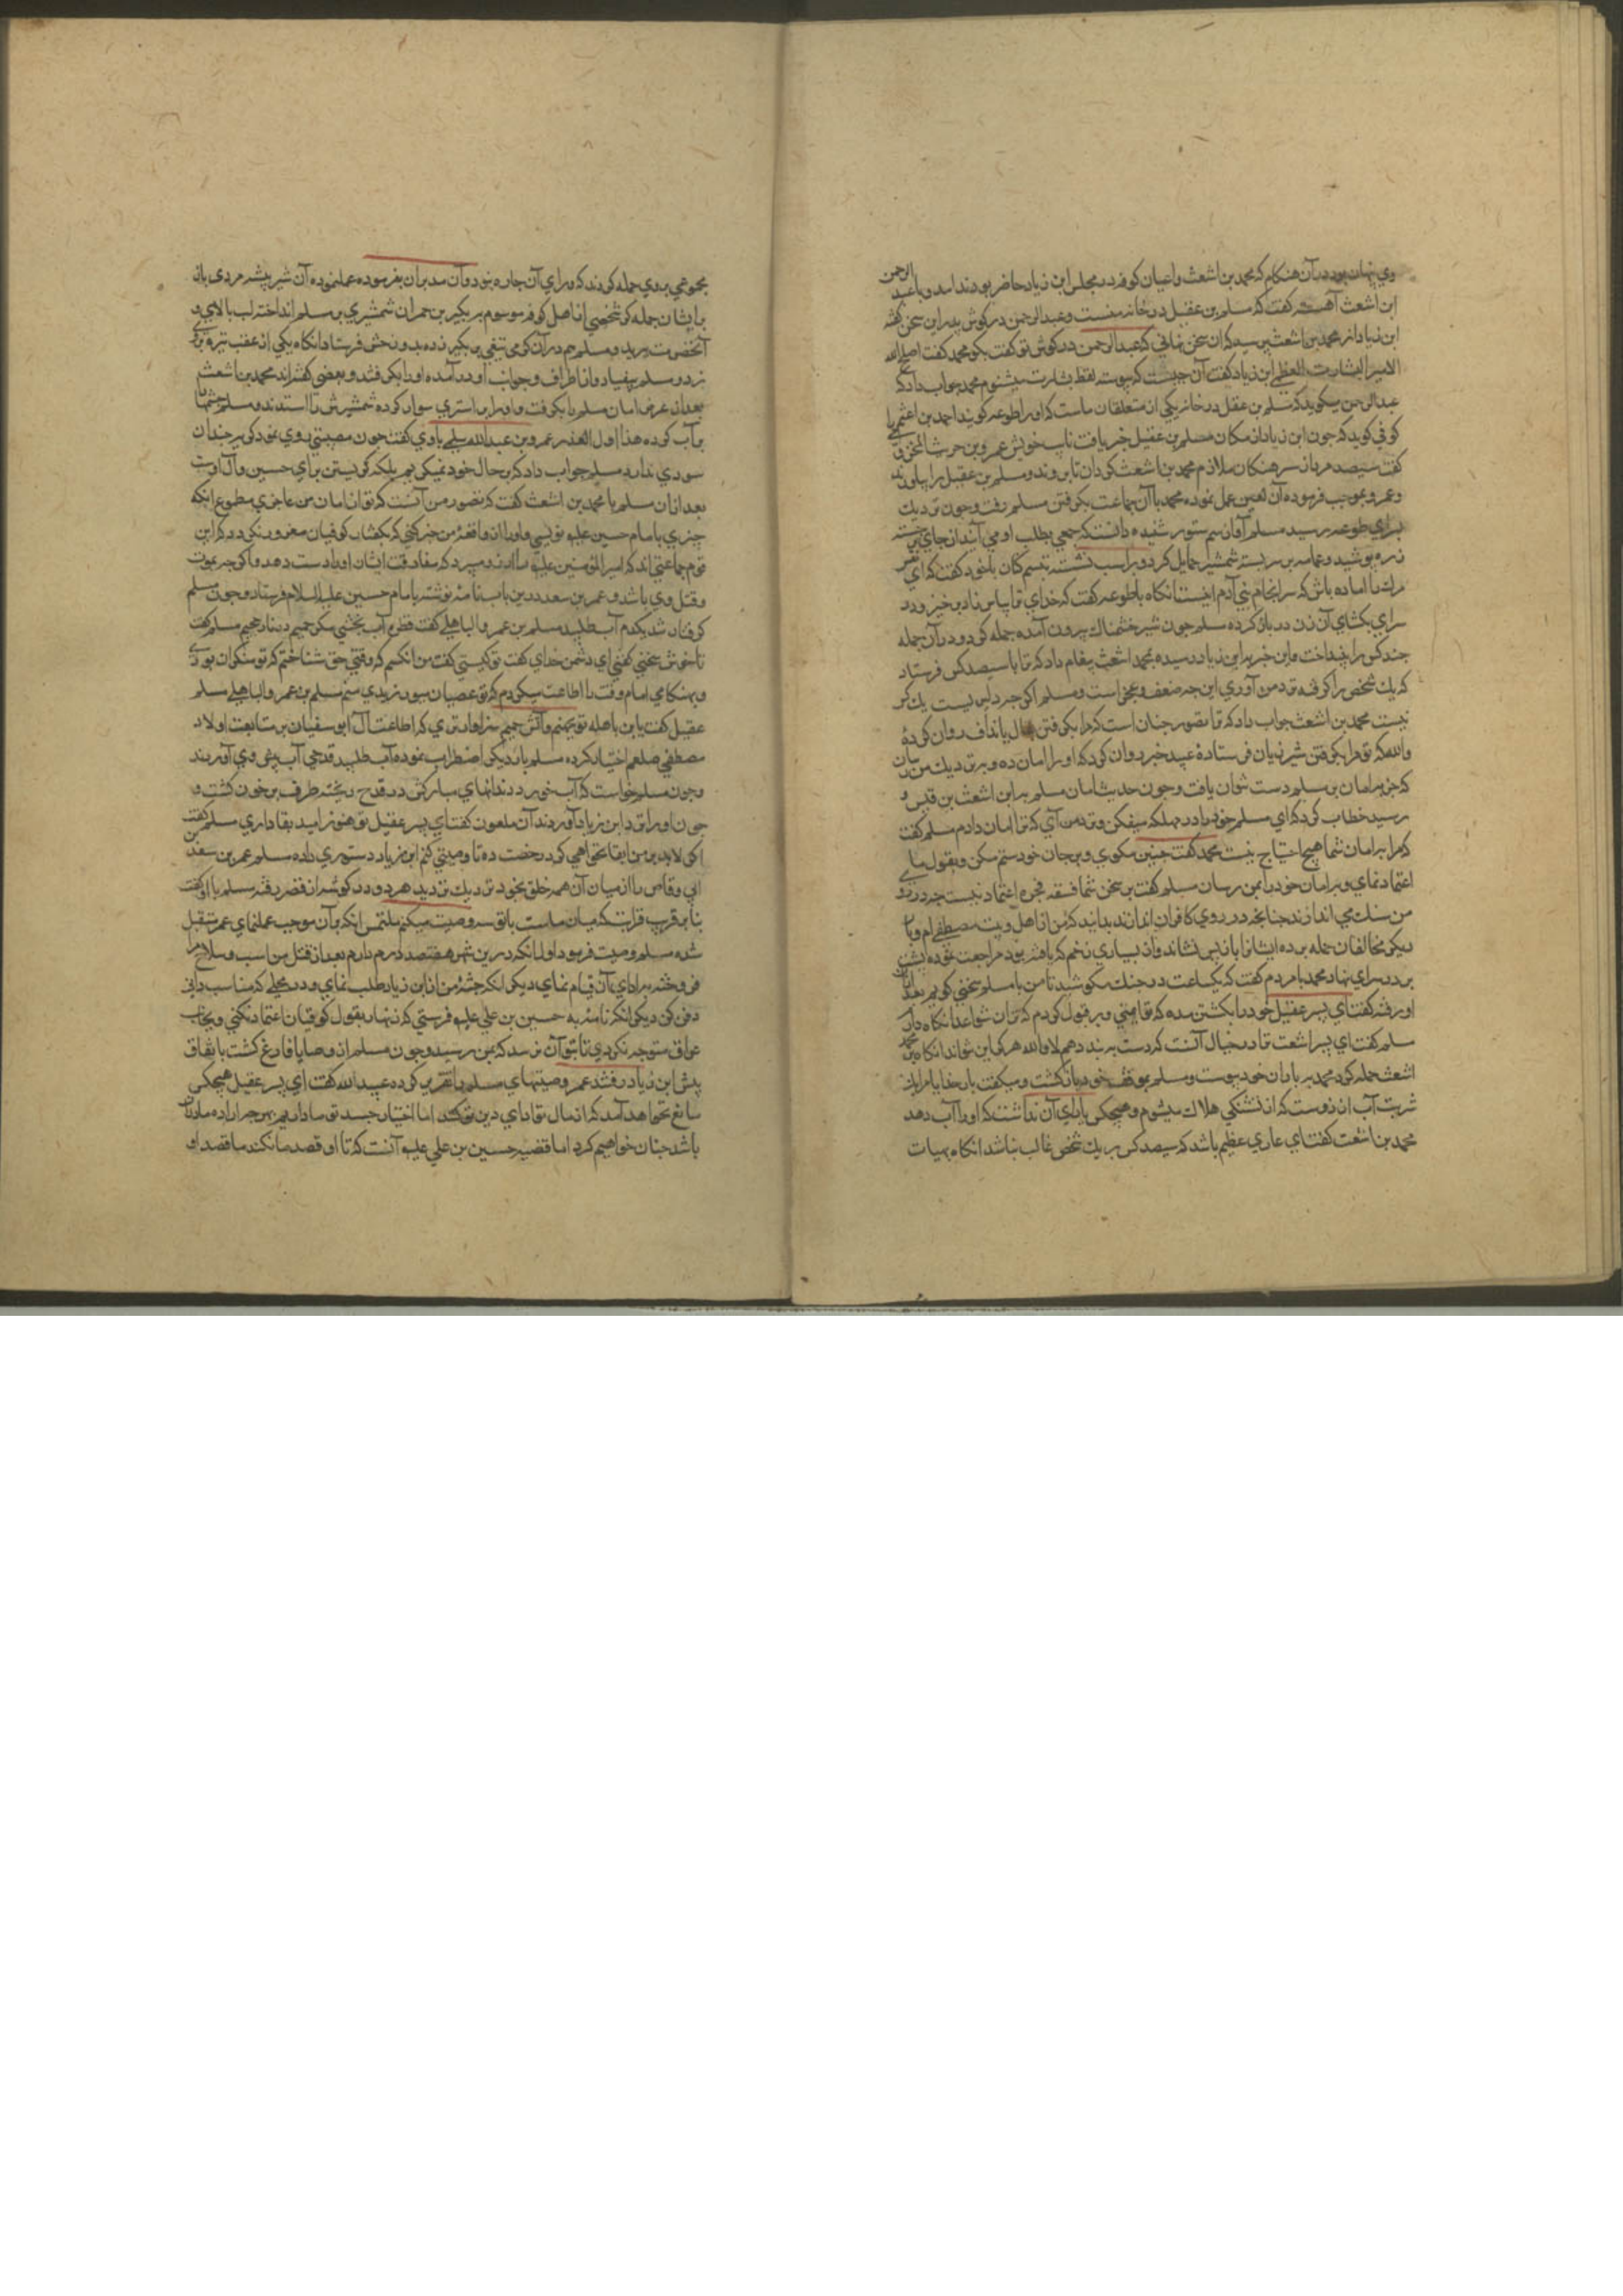 وي پنهان بود در آن هنكام كه محمد بن اشعث واعيان كوفه در مجلس ابن زياد حاضر بودند امد و با عبد الرحمن
ابن اشعث آهسته كفت كه مسلم بن عقيل در خانه منست وعبدالرحمن در كوش پدر اين سخن كفته
ابن زياد از محمد بن اشعث پرسيد كه ان سخن نهاني كه عبدالرحمن در كوش تو كفت بكو محمد كفت اصلح الله
الامير البشارت العظمي ابن زياد كفت آن چيست كه پيوسته لفظ بشارت ميشنوم محمد جواب داد كه
عبدالرحمن ميكويد كه مسلم بن عقيل در خانه يكي از متعلقان ماست كه او را طوعه كويند احمد بن اعثم
كوفي كويد كه جون ابن زياد از مكان مسلم بن عقيل خبر يافت نايب خويش عمرو بن حريث المخزومي
كفت سيصد مرد از سرهنكان ملازم محمد بن اشعث كردان تا بروند ومسلم بن عقيل را بياورند
وعمرو بموجب فرموده آن لعين عمل نموده محمد با آن جماعت بكرفتن مسلم رفت وجون نزديك
سراي طوعه رسيد مسلم آواز سم ستور شنيده دانست كه جمعي بطلب او مي آيند از جاي برجسته
زره پوشيد وعمامه بر سر بسته شمشير حمايل كرد و بر اسب نشسته تبسم كنان با خود كفت كه اي نفس
مرك را اماده باش كه سرانجام بني آدم اينست انكاه با طوعه كفت كه خداي ترا بيامرزاد برخيز ودر
سراي بكشاي آن زن در باز كرده مسلم جون شير خشمناك بيرون آمده حمله كرد ودر آن حمله
جند كس را بينداخت واين خبر بابن زياد رسيده بمحمد اشعث پيغام داد كه ترا با سيصد كس فرستاد
كه يك شخص را كرفته نزد من آوري اين چه ضعف وعجز است ومسلم اكر جه دلير است يك كس
نيست محمد بن اشعث جواب داد كه ترا تصور جنان است كه مرا بكرفتن بقال يا نداف روان كرده
والله كه تو مرا بكرفتن شير ژيان فرستاده عبيد خبر روان كرد كه او را امان ده و بنزديك من رسان
كه جز بامان بر مسلم دست نتوان يافت وجون حديث امان مسلم بابن اشعث بن قيس
رسيد خطاب كرد كه اي مسلم خود را در مهلكه ميفكن ونزد من آي كه ترا امان دادم مسلم كفت
كه مرا بامان شما هيج احتياج نيست محمد كفت جنين مكوي وبر جان خود ستم مكن وبقول ما
اعتماد نماي وبامان خود را بمن رسان مسلم كفت بر سخن شما فسقه فجره اعتماد نيست
من سنك مي اندازند جنانجه در روي كافران اندازند بدانيد كه من از اهل بيت مصطفي ام
ديكر مخالفان حمله برده ايشانرا باز پس نشاند واز بسياري زخم كه يافته بود مراجعت نموده پشت
بر در سراي نهاد محمد با مردم كفت كه يكساعت در جنك مكوشيد تا من با مسلم سخني كويم بعد از آن
او رفته كفت اي پسر عقيل خود را بكشتن مده كه تو ايمني وبر قول كردم كه ترا
مسلم كفت اي پسر اشعث ترا در خيال آنست كه دست ببند دهم لا والله هركز اين نتواند انكاه بر محمد
اشعث حمله كرد محمد بر ياران خود پيوست ومسلم بموقف خود باز كشت وميكفت بار خدايا مرا يك
شربت آب ارزوست كه از تشنكي هلاك ميشوم وهيجكس ياراي آن نداشت كه او را آب دهد
محمد بن اشعث كفت اي عاري عظيم باشد كه سيصد كس بر يك شخص غالب نباشد انكاه بهيات
مجموعي بروي حمله كردند كه وراي آن جاره نبود وآن مدبران بفرموده عمل نموده آن شير بيشه مردي بار
بايشان حمله كرد شخصي از اهل كوفه موسوم ببكير بن حمران شمشيري بر مسلم انداخته لب بالاي
آنحضرت ببريد ومسلم هم در آن كرمي تيغي بر بكير زده بدوزخش فرستاد انكاه يكي از عقب نيزه بر وي
زد ومسلم بيفتاد واز اطراف وجوانب او در آمده او را بكرفتند وبعضي كفته اند محمد بن اشعث
بعد از عرض امان مسلم را بكرفت واو را بر استري سوار كرده شمشيرش را استدند ومسلم چشمها
پر آب كرده هذا اول الغدر عمرو بن عبدالله سلمي با وي كفت جون مصيبتي روي نمود كريه چندان
سودي ندارد مسلم جواب داد كه بر حال خود نميكريم بلكه كريستن براي حسين وآل اوست
بعد از ان مسلم با محمد بن اشعث كفت كه تصور من آنست كه تو از امان من عاجزي مطموع انكه
چيزي بامام حسين عليه نويسي واو را از واقعه من خبر كني كه بكفتار كوفيان مغرور نكردد كه اين
قوم جماعتي اند كه امير المؤمنين علي را ارزو ميبرد كه مفارقت ايشان او را دست دهد واكر جه بموت
وقتل وي باشد وعمر بن سعد در بن باب نامه نوشته بامام حسين عليه السلام فرستاد وجون مسلم
كرفتار شد يكدم آب طلبيد مسلم بن عمرو الباهلي كفت قطره آب نچشي مكر حميم در نار جحيم مسلم كفت
ناخوش سخني كفتي اي دشمن خداي كفت تو كيستي كفت من انكسم كه وقتي حق شناختم كه تو منكر ان بودي
وبهنكامي امام وقت را اطاعت ميكردم كه تو عصيان ميورزيدي منم مسلم بن عمرو الباهلي مسلم
عقيل كفت يابن باهله تو بجهنم وآتش جحيم سزاوارتري كه اطاعت آل ابو سفيان بر متابعت اولاد
مصطفي صلعم اختيار كرده مسلم بار ديكر اضطراب نموده آب طلبيد قدحي آب پيش وي آوردند
وجون مسلم خواست كه آب خورد دندانهاي مباركش در قدح ريخته ظرف پر خون كشت و
جون او را نزد ابن زياد آوردند آن ملعون كفت اي پسر عقيل تو هنوز اميد بقا داري مسلم كفت
اكر لابد بر من ابقا نخواهي كرد رخصت ده تا وصيتي كنم ابن زياد دستوري داده مسلم عمر بن سعد بن
ابي وقاص را از ميان آن همه خلق بخود نزديك تر ديد هر دو در كوشه از قصر رفته مسلم با او كفت
بنا بر قرب قرابت كه ميان ماست با تو سه وصيت ميكنم ملتمس انكه بآن موجب عمل نماي عمر متقبل
شده مسلم وصيت فرمود اول انكه درين شهر هفتصد درم دارم بعد از قتل من اسب وسلاح مرا
فروخته باداي آن قيام نماي ديكر انكه جثه من از ابن زياد طلب نماي ودر محلي كه مناسب داني
دفن كن ديكر انكه نامه به حسين بن علي عليه فرستي كه زنهار بقول كوفيان اعتماد نكني وبجانب
عراق متوجه نكردي تا بتو آن نرسد كه بمن رسيد وجون مسلم از وصايا فارغ كشت باتفاق
پيش ابن زياد رفتند عمر وصيتهاي مسلم را تقرير كرده عبيد الله كفت اي پسر عقيل هيچكس
مانع نخواهد آمد كه از مال تو اداي دين تو كند اما اختيار جسد تو ما داريم بهر چه اراده ما
باشد جنان خواهيم كرد اما قضيه حسين بن علي عليه آنست كه تا او قصد ما نكند ما قصد او